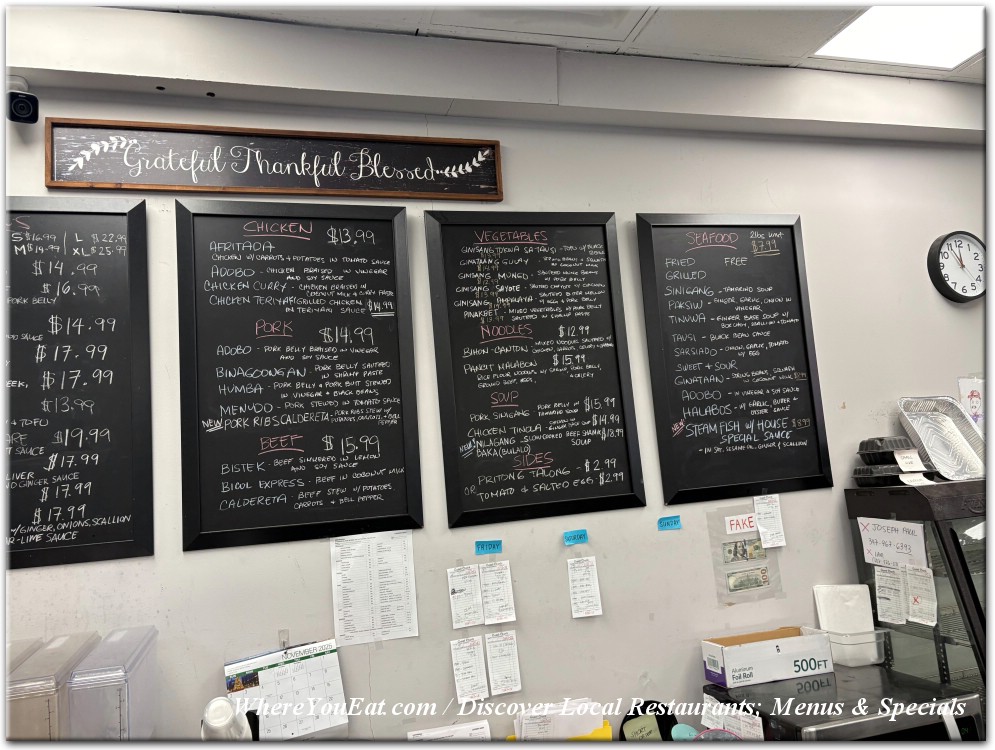 Grateful Thankful Blessed
S $16.99 | L $22.99
M $19.99 | XL $25.99
$14.99
$16.99
PORK BELLY
$14.99
SAUCE
$17.99
$17.99
$13.99
+ TOFU
$19.99
T SAUCE
$17.99
LIVER
GINGER SAUCE
$17.99
$17.99
W/GINGER, ONIONS, SCALLION
R-LIME SAUCE
CHICKEN $13.99
AFRITADA
CHICKEN W/CARROTS & POTATOES IN TOMATO SAUCE
ADOBO - CHICKEN BRAISED IN VINEGAR
AND SOY SAUCE
CHICKEN CURRY - CHICKEN BRAISED IN
COCONUT MILK & CURRY PASTE
CHICKEN TERIYAKI GRILLED CHICKEN $14.99
IN TERIYAKI SAUCE
PORK $14.99
ADOBO - PORK BELLY BRAISED IN VINEGAR
AND SOY SAUCE
BINAGOONGAN - PORK BELLY SAUTEED
IN SHRIMP PASTE
HUMBA - PORK BELLY & PORK BUTT STEWED
IN VINEGAR & BLACK BEANS
MENUDO - PORK STEWED IN TOMATO SAUCE
NEW PORK RIBS CALDERETA - PORK RIBS STEW W/
POTATOES, CARROTS, & BELL
PEPPER
BEEF $15.99
BISTEK - BEEF SIMMERED IN LEMON
AND SOY SAUCE
BICOL EXPRESS - BEEF IN COCONUT MILK
CALDERETA - BEEF STEW W/ POTATOES,
CARROTS & BELL PEPPER
VEGETABLES
GINISANG TOKWA SA TAUSI - TOFU W/ BLACK
BEANS
GINATAANG GULAY - STRING BEANS & SQUASH
$14.99 IN COCONUT MILK
GINISANG MUNGO - SAUTEED MUNG BEANS
W/ PORK BELLY
GINISANG SAYOTE - SAUTEED CHAYOTE W/ CHICKEN
GINISANG AMPALAYA - SAUTEED BITTER MELON
W/ EGG & PORK BELLY
PINAKBET - MIXED VEGETABLES W/ PORK BELLY
SAUTEED IN SHRIMP PASTE
NOODLES $12.99
BIHON-CANTON - MIXED NOODLES SAUTEED W/
CHICKEN, CARROTS, CELERY & CABBAGE
PANCIT MALABON $15.99
RICE FLOUR NOODLES W/ SHRIMP, PORK BELLY,
GROUND BEEF, EGGS, & CELERY
SOUP
PORK SINIGANG - PORK BELLY IN $15.99
TAMARIND SOUP
CHICKEN TINOLA - CHICKEN IN $14.99
GINGER BASE SOUP
NEW! NILAGANG - SLOW COOKED BEEF SHANK $18.99
BAKA (BULALO) SOUP
SIDES
PRITONG TALONG - $2.99
OR TOMATO & SALTED EGG - $2.99
SEAFOOD 2lbs LIMIT
$7.99
FRIED FREE
GRILLED
SINIGANG - TAMARIND SOUP
PAKSIW - GINGER, GARLIC, ONION IN
VINEGAR
TINUWA - GINGER BASE SOUP W/
BOK CHOY, SCALLION & TOMATO
TAUSI - BLACK BEAN SAUCE
SARSIADO - ONION, GARLIC, TOMATO
W/ EGG
SWEET & SOUR
GINATAAN - STRING BEANS, SQUASH
IN COCONUT MILK
ADOBO - IN VINEGAR & SOY SAUCE
HALABOS - W/ GARLIC, BUTTER &
OYSTER SAUCE
NEW STEAM FISH W/ HOUSE $8.99
SPECIAL SAUCE
- IN SOY, SESAME OIL, GINGER & SCALLION
FRIDAY
SATURDAY
SUNDAY
FAKE
JOSEPH PAUL
NOVEMBER 2025
Aluminum
Foil Roll
500FT
WhereYouEat.com / Discover Local Restaurants; Menus & Specials